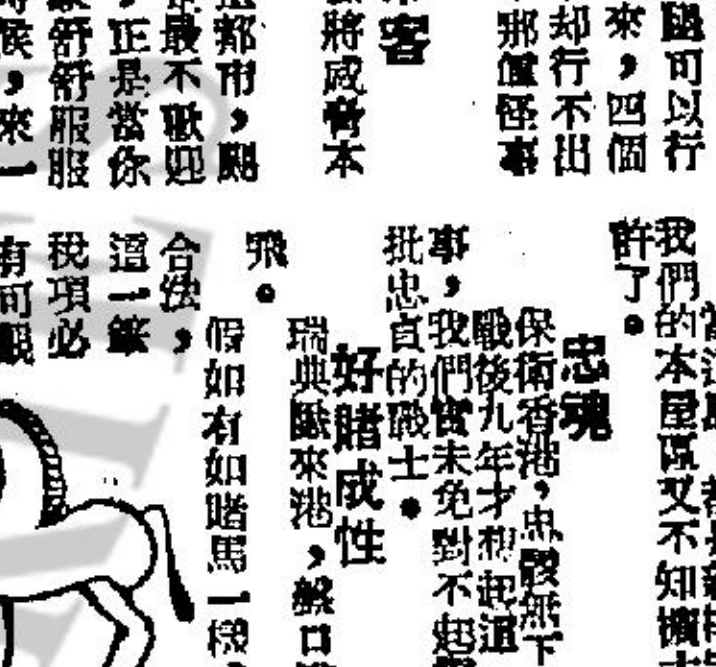 可以行
來，四個
却行不出
那個怪事
來客
將威脅本
都市，
最不歡迎
，正是當你
舒舒服服
候，來一
我們的本屋區又不知
許了。
忠魂
保衛香港，忠骸無下
戰後九年才想起這
事，我們實未免對不起
批忠貞的戰士。
好賭成性
瑞典隊來港，盤口
飛。
假如有如賭馬一樣
合法，
這一筆
稅項必
有可觀